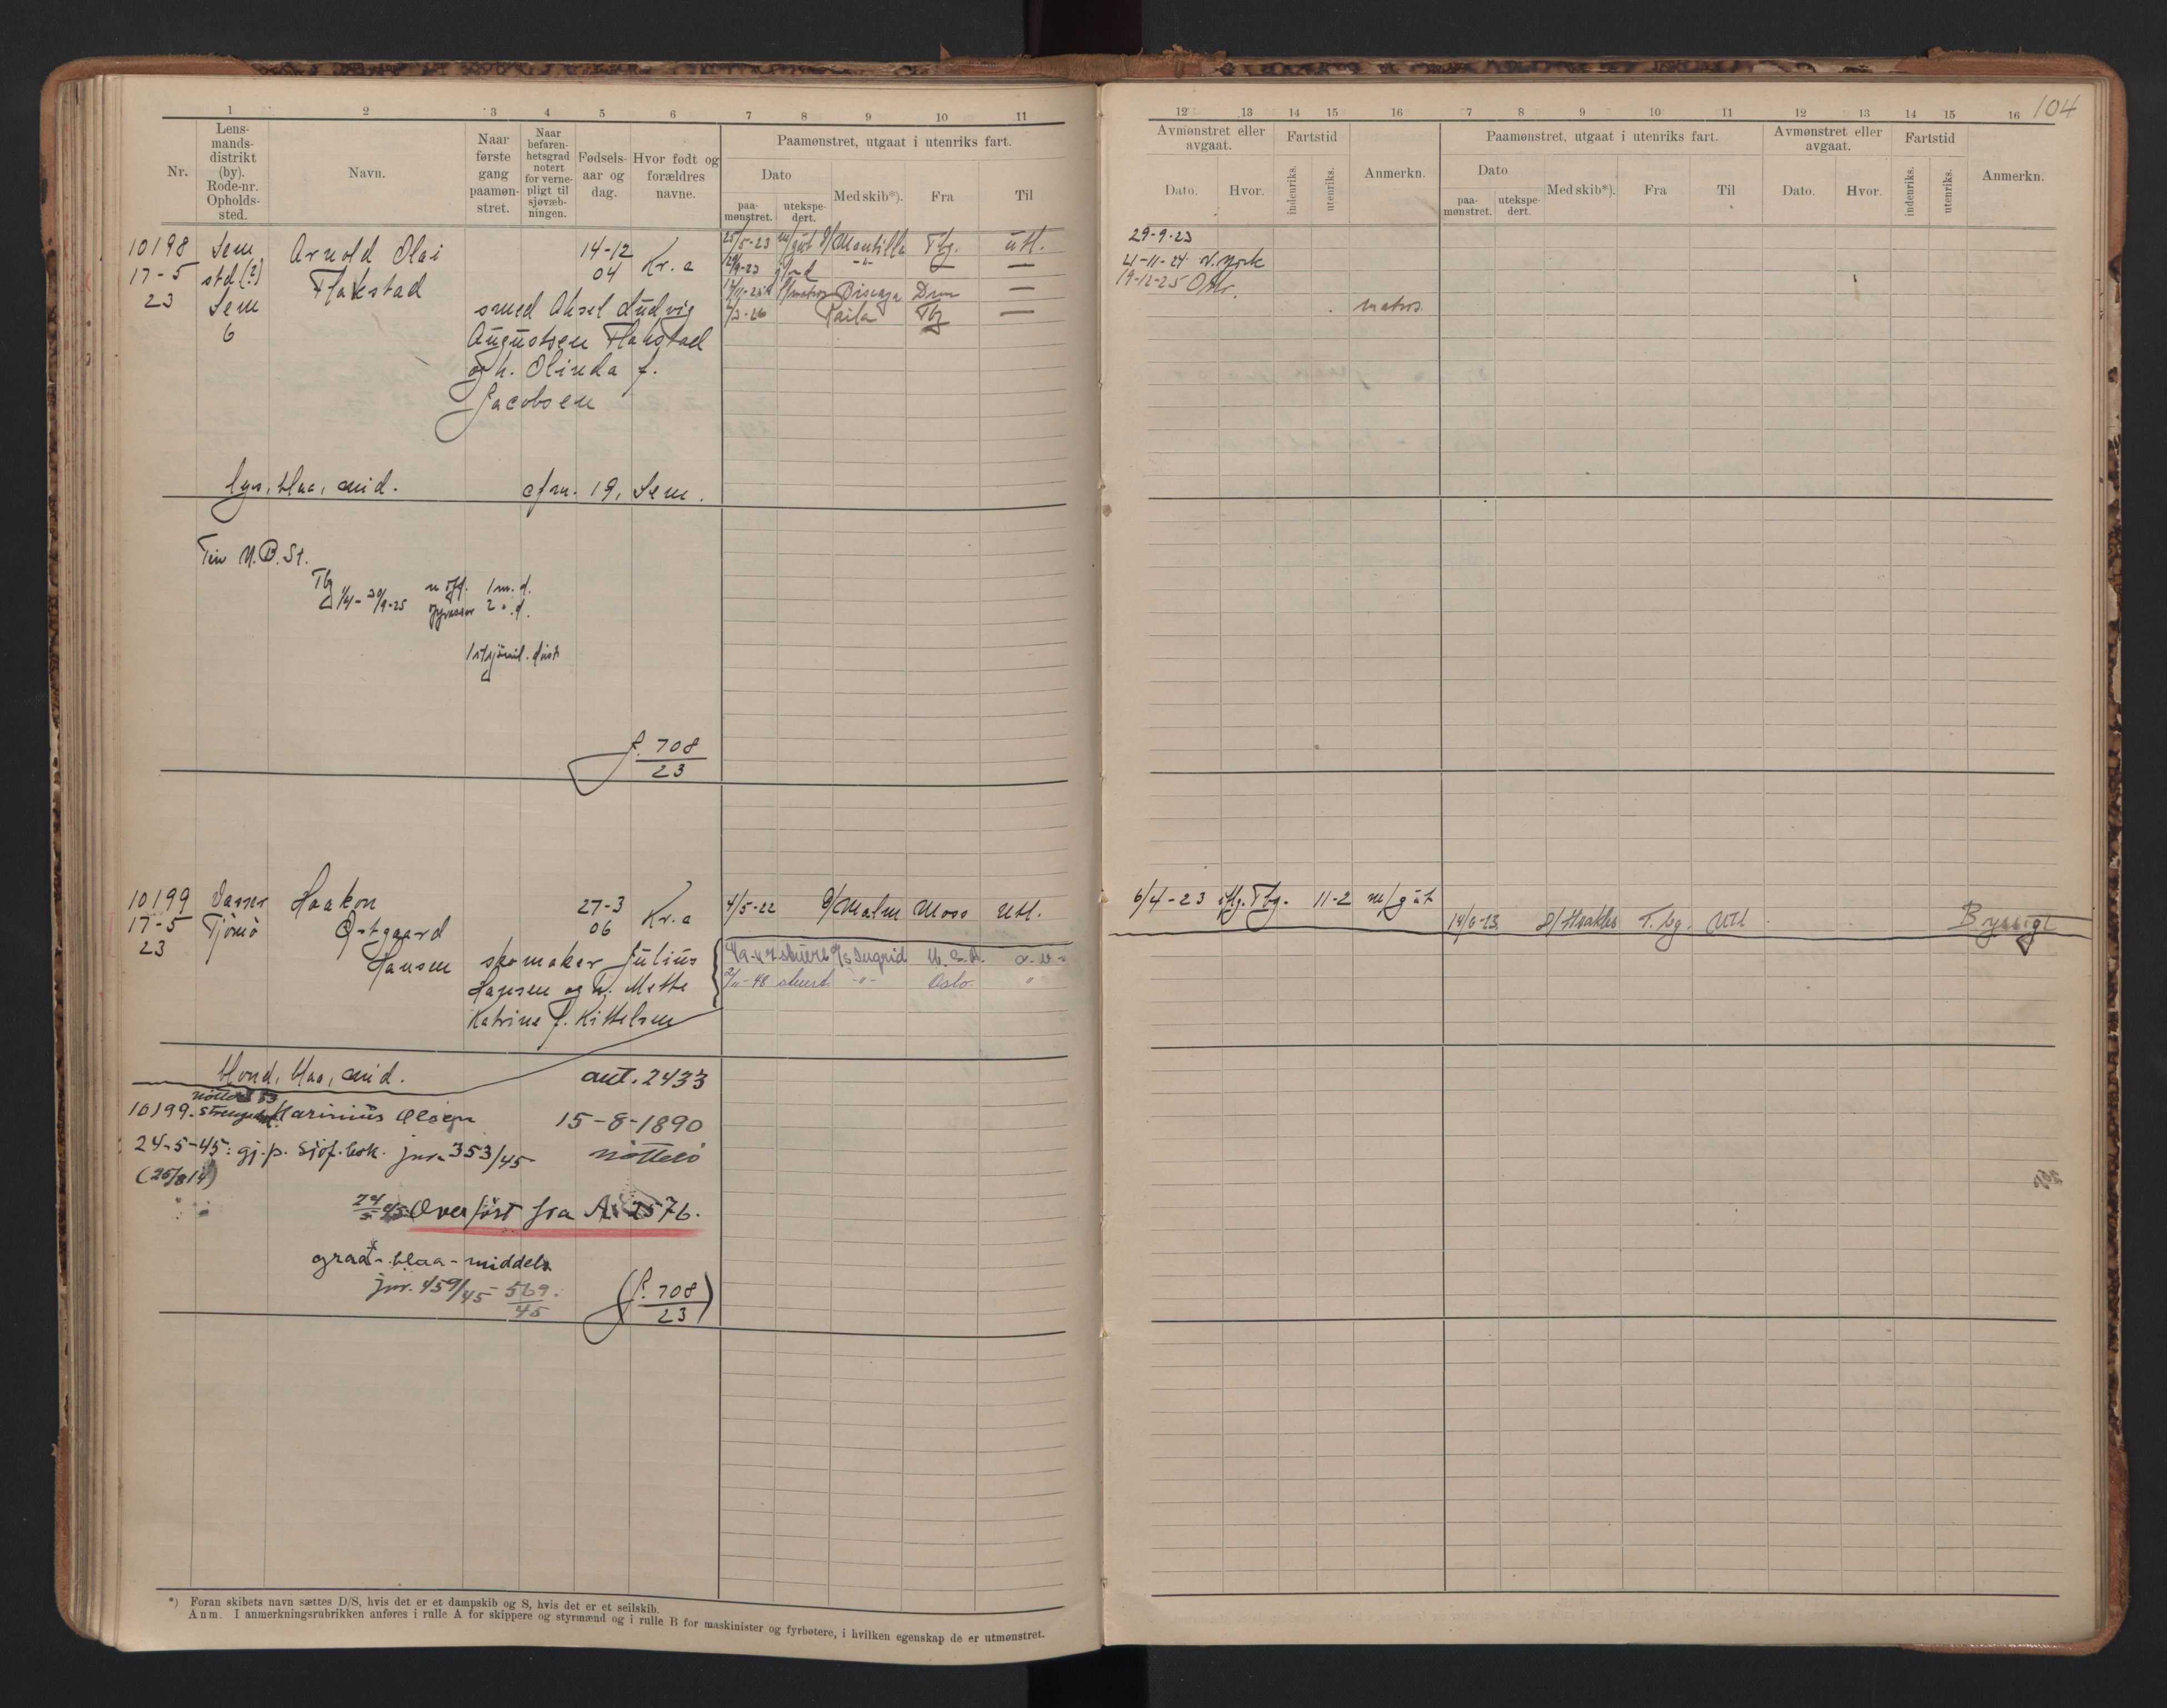 1 2 3 4 5 6 7 8 9 10 11
Nr.
Lens-
mands-
distrikt
(by).
Rode-nr.
Opholds-
sted.
Navn.
Naar
første
gang
paamøn-
stret.
Naar
befaren-
hetsgrad
notert
for verne-
pligt til
sjøvæb-
ningen.
Fødsels-
aar og
dag.
Hvor født og
forældres
navne.
Paamønstret, utgaat i utenriks fart.
Dato
paa-
mønstret.
utekspe-
dert.
Med skib*).
Fra
Til
10198 Sem Arnold Olai 14-12 Kr.a
17-5 std(?) Flakstad 04
23 Sem smed Aksel Ludvig
6 Augustsen Flakstad
og h. Olinda f.
Jacobsen
25/5-23 m/gut D/Montilla Tbg. Utl.
29/9-23 -"- —
Biscaya Drm —
2/3-26 Tbg —
lys, blaa, mid. 19, Sem.
N.B.St.
Tbg 1/4 - 30/9-25 1 m. d.
2 " d.
f. 708
23
10199 Vasser Haakon 27-3 Kr.a
17-5 Tjömö Østgaard 06
23 Hansen skomaker Julius
Hansen og h. Mette
Katrine f. Kittelsen
4/5-22 D/Malm Moss Utl.
Ingrid U.S.A.
-48 -"- Oslo. "
blond, blaa, mid. ant. 2433
10199. Marinius Olsen 15-8-1890
24-5-45: gj.p. sjöf.bok. jnr. 353/45 Nötterö
(25/8 14)
24/5 45 Overført fra A 2576.
graa - blaa - middels
jnr. 459/45 - 569.
45
(f. 708)
23
*) Foran skibets navn sættes D/S, hvis det er et dampskib og S, hvis det er et seilskib.
Anm. I anmerkningsrubrikken anføres i rulle A for skippere og styrmænd og i rulle B for maskinister og fyrbøtere, i hvilken egenskap de er utmønstret.
12 13 14 15 16 7 8 9 10 11 12 13 14 15 16 104
Avmønstret eller
avgaat.
Dato.
Hvor.
Fartstid
indenriks.
utenriks.
Anmerkn.
Paamønstret, utgaat i utenriks fart.
Dato
paa-
mønstret.
utekspe-
dert.
Med skib*).
Fra
Til
Avmønstret eller
avgaat.
Dato.
Hvor.
Fartstid
indenriks.
utenriks.
Anmerkn.
29-9-23
21-11-24 N.York
19-12-25
matros.
6/4-23 Tbg. 11-2 m/gut
T.bg. Utl